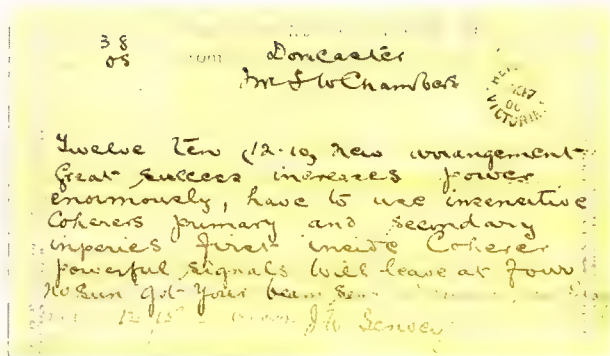 38
05
Doncaster
Mr F W Chambers
VICTORIA
Twelve Ten (12-10) New arrangement
Great success increases power
enormously, have to use insensitive
Coherers primary and secondary
inperies first inside Coherer
powerful signals Will leave at Four
No Sun Got Your beam
12-15